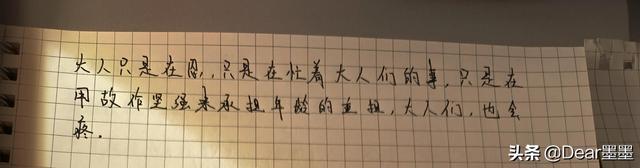 大人只是在忍,只是在忙着大人们的事,只是在
用故作坚强来承担年龄的重担,大人们,也会
疼.
头条 @Dear墨墨